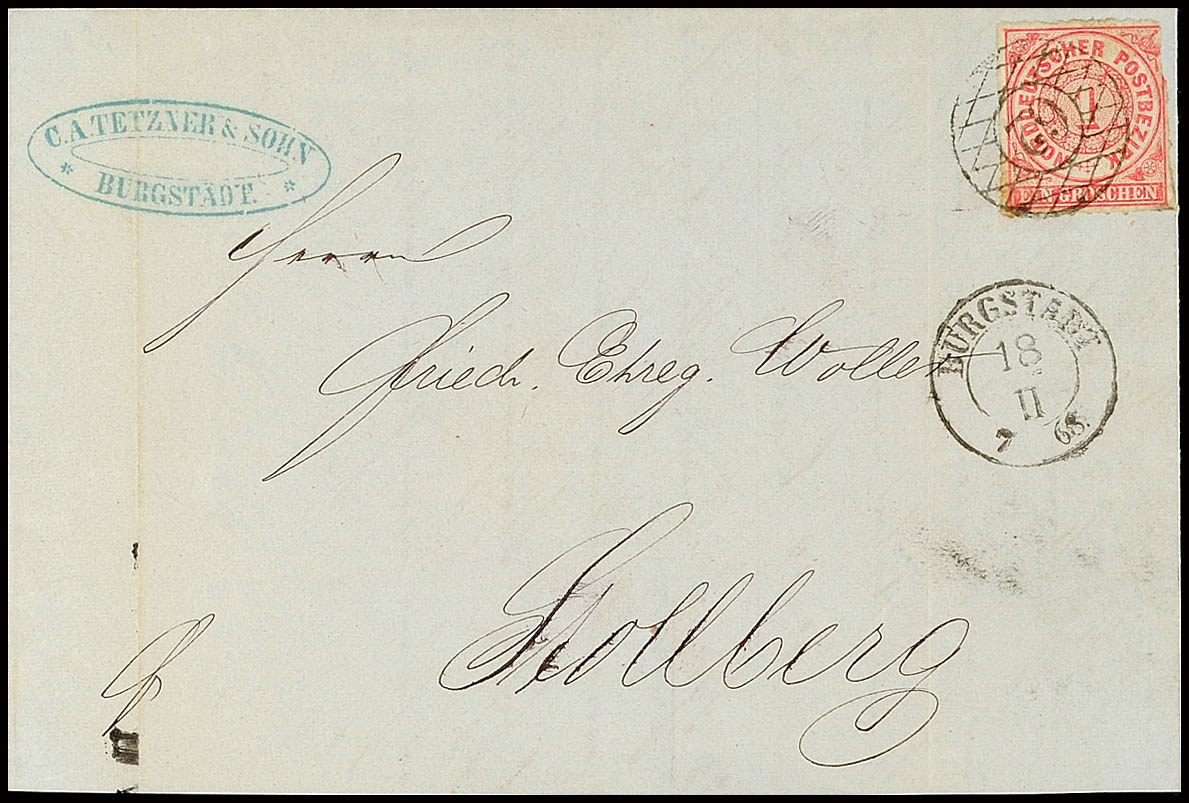 C. A. TETZNER & SOHN
* BURGSTÄDT. *
NORDDEUTSCHER POSTBEZIRK
1
EIN GROSCHEN
Herrn
Friedr. Ehreg. Woller
BURGSTADT
18
II
7 68.
Stollberg